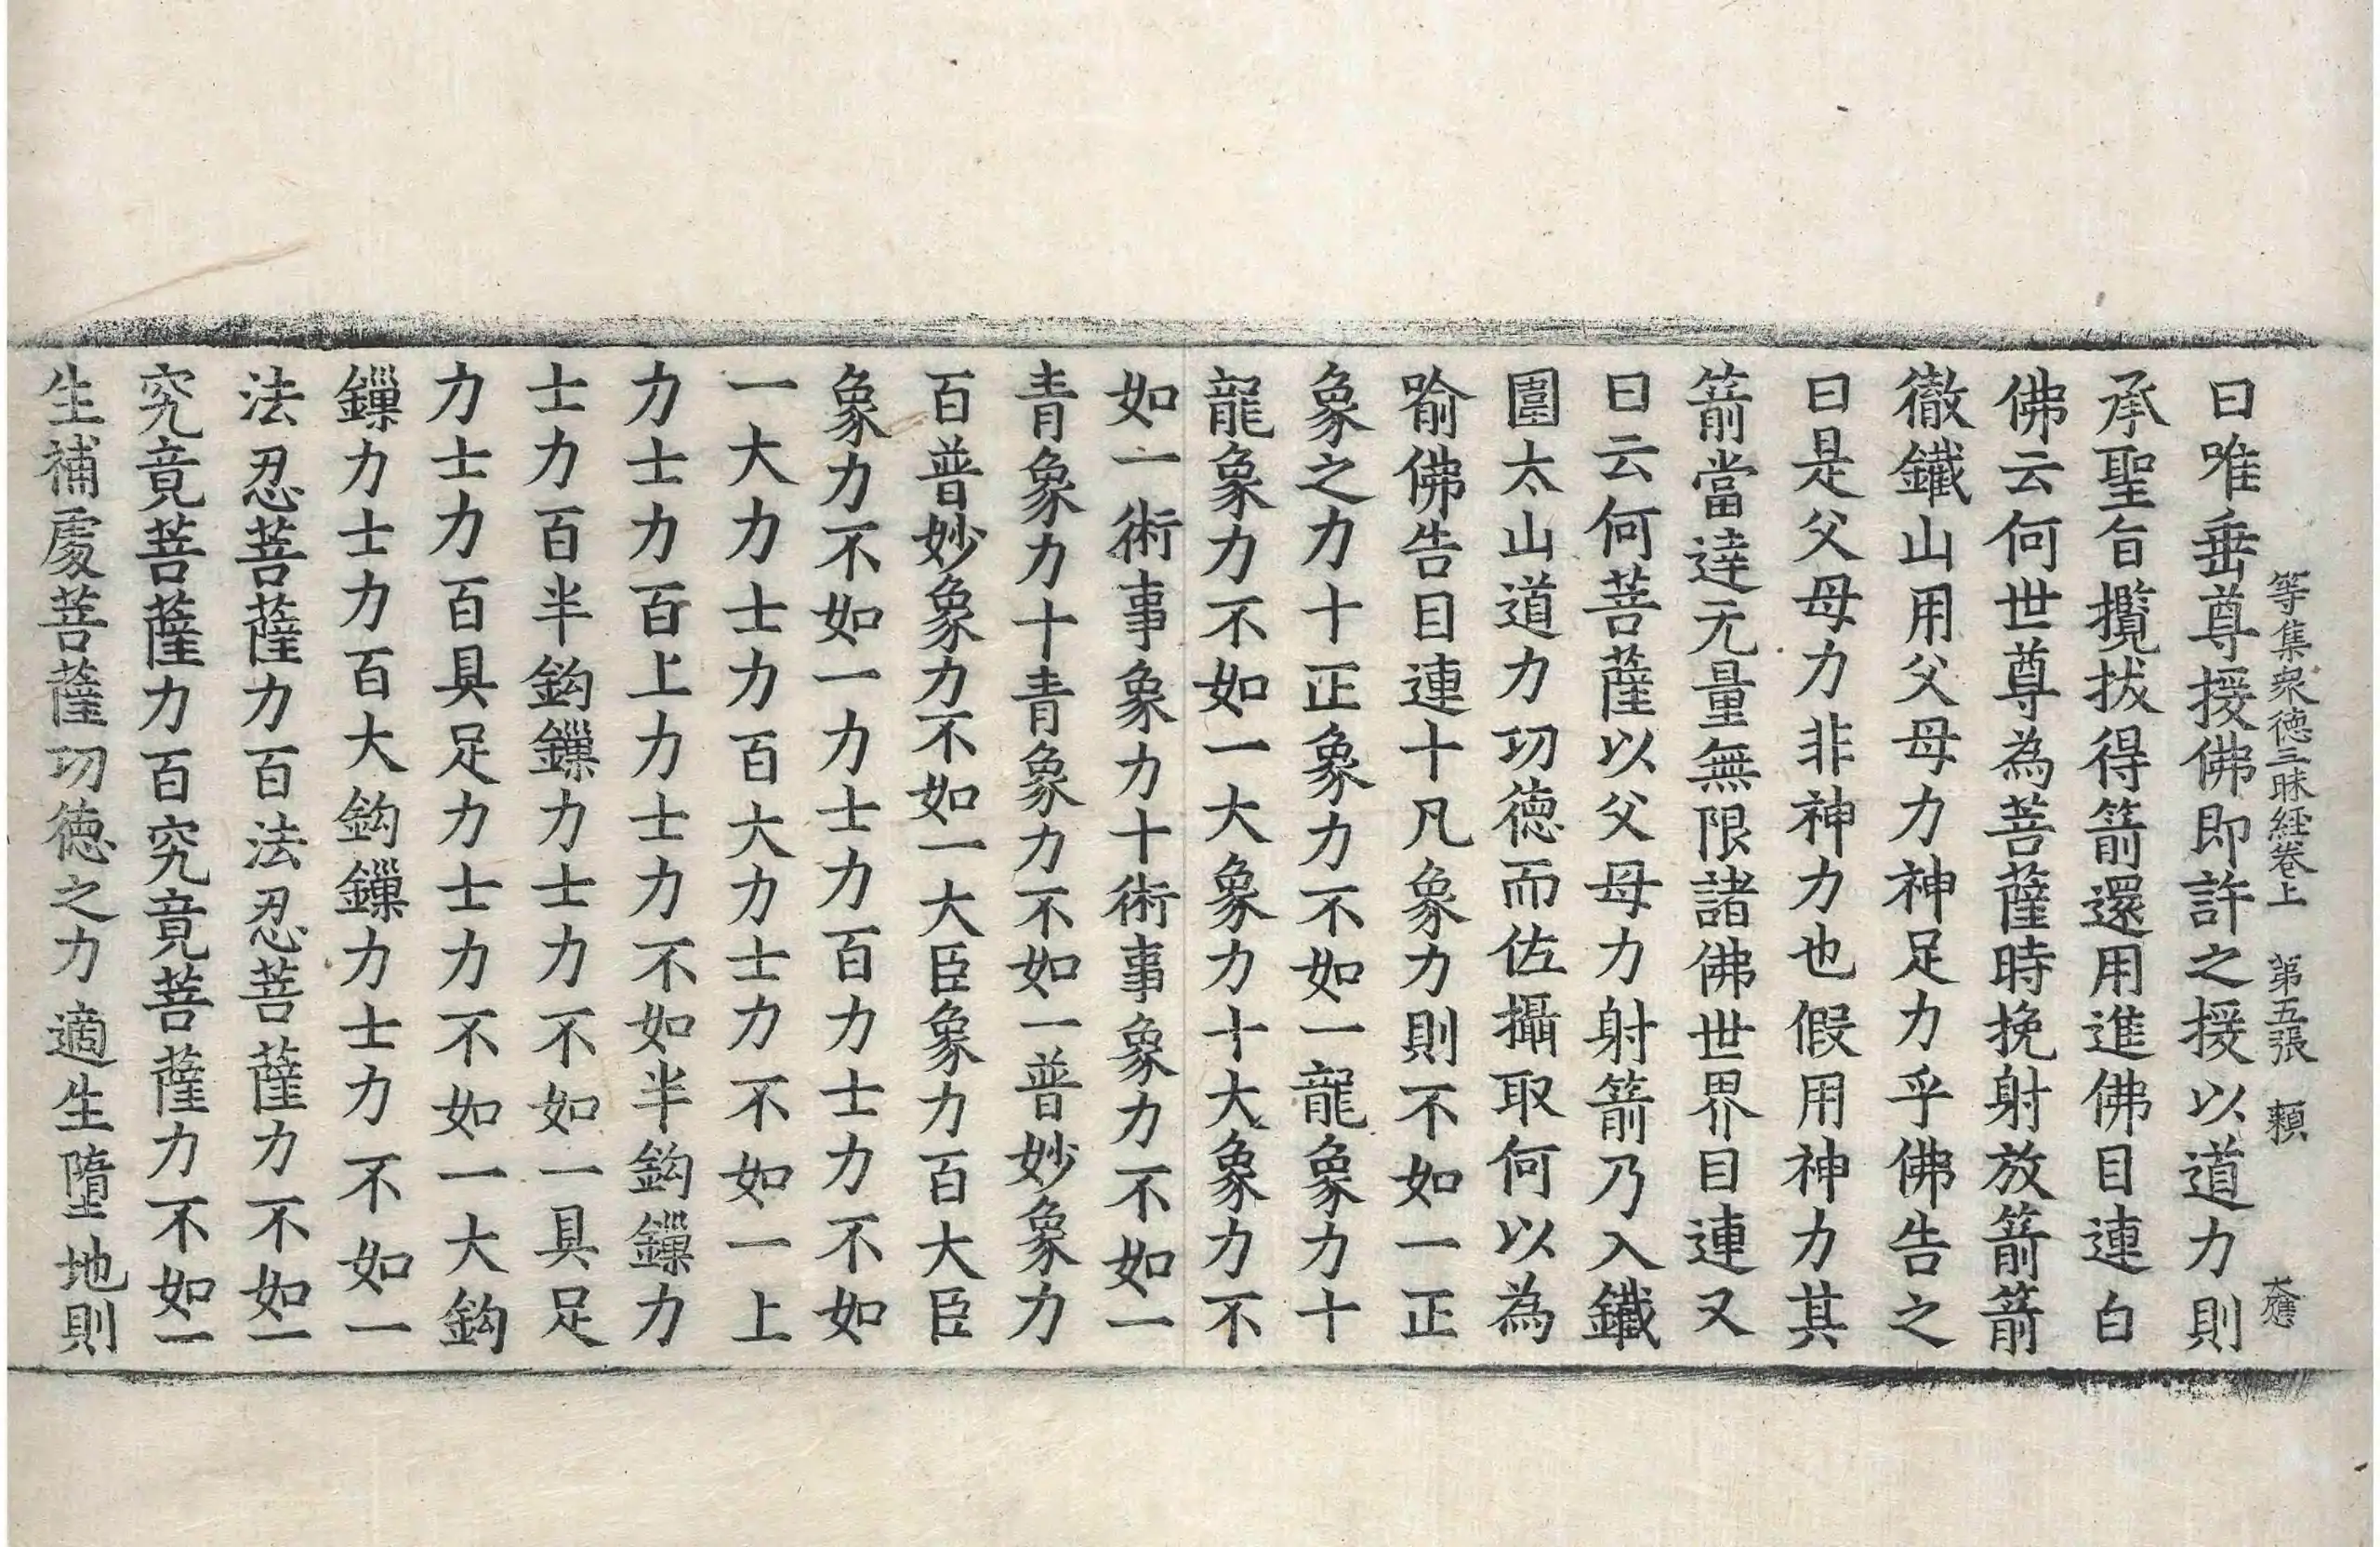 等集衆德三昧経卷上　第五張　頼　大應
曰唯垂尊接佛即許之援以道力則
承聖旨攬拔得箭還用進佛目連白
佛云何世尊為菩薩時挽射放箭箭
徹鐵山用父母力神足力乎佛告之
曰是父母力非神力也假用神力其
箭當達无量無限諸佛世界目連又
曰云何菩薩以父母力射箭乃入鐵
圍太山道力功德而佐攝取何以為
喻佛告目連十凡象力則不如一正
象之力十正象力不如一龍象力十
龍象力不如一大象力十大象力不
如一術事象力十術事象力不如一
青象力十青象力不如一普妙象力
百普妙象力不如一大臣象力百大臣
象力不如一力士力百力士力不如
一大力士力百大力士力不如一上
力士力百上力士力不如半鈎鏁力
士力百半鈎鏁力士力不如一具足
力士力百具足力士力不如一大鈎
鏁力士力百大鈎鏁力士力不如一
法忍菩薩力百法忍菩薩力不如一
究竟菩薩力百究竟菩薩力不如一
生補處菩薩功德之力適生墮地則